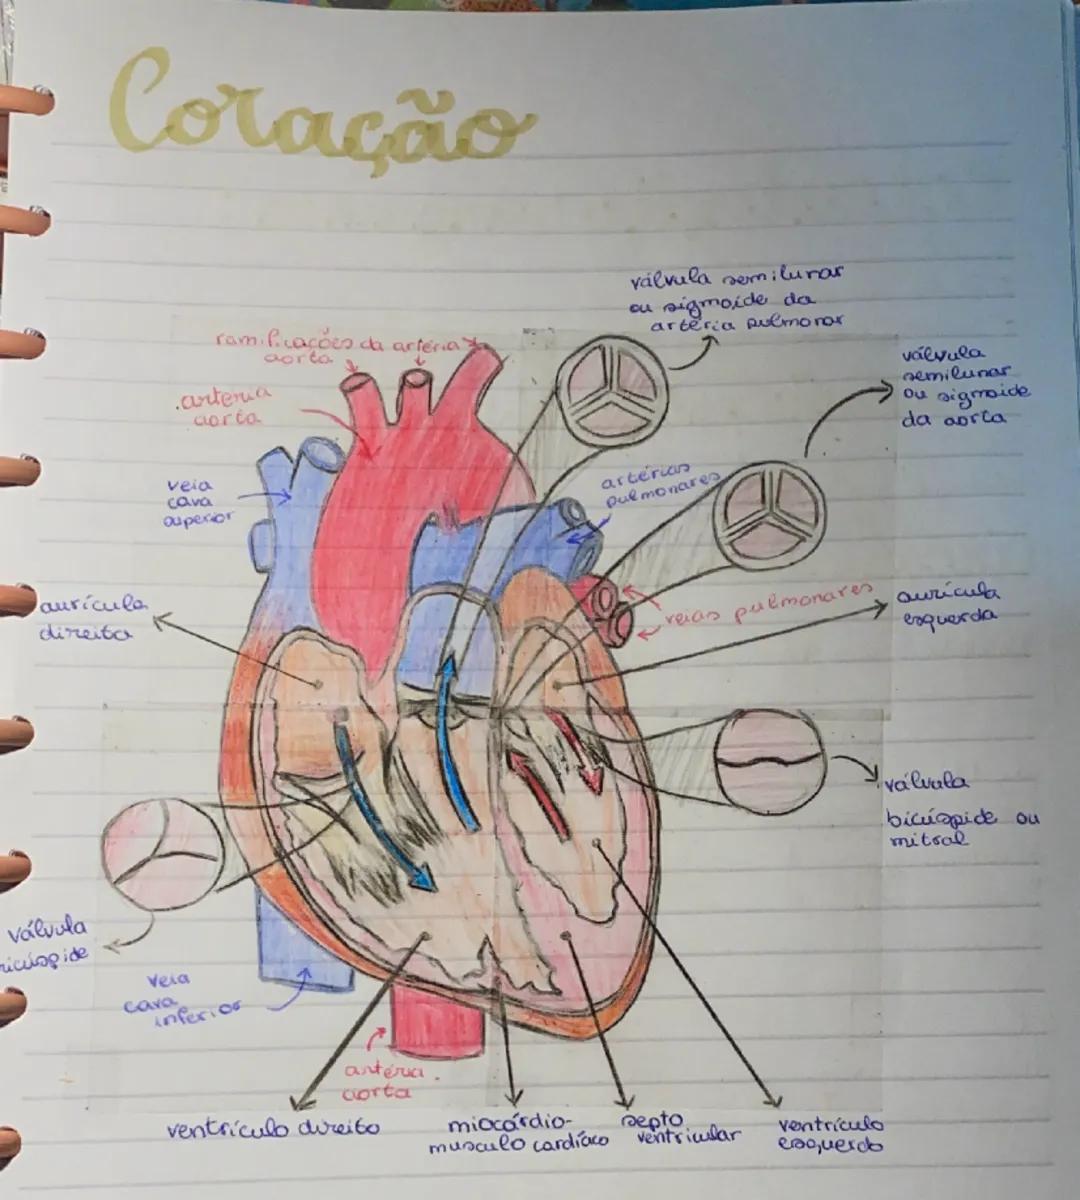 Coração
válvula semilunar
ou sigmoide da
artéria pulmonar
ramificações da artéria
aorta
válvula
semilunar
ou sigmoide
da aorta
arteria
aorta
artérias
pulmonares
veia
cava
superior
veias pulmonares
aurícula
esquerda
aurícula
direita
válvula
bicúspide ou
mitral
válvula
ricúspide
veia
cava
inferior
artéria
aorta
ventrículo direito
miocárdio-
musculo cardíaco
septo
ventricular
ventrículo
esquerdo